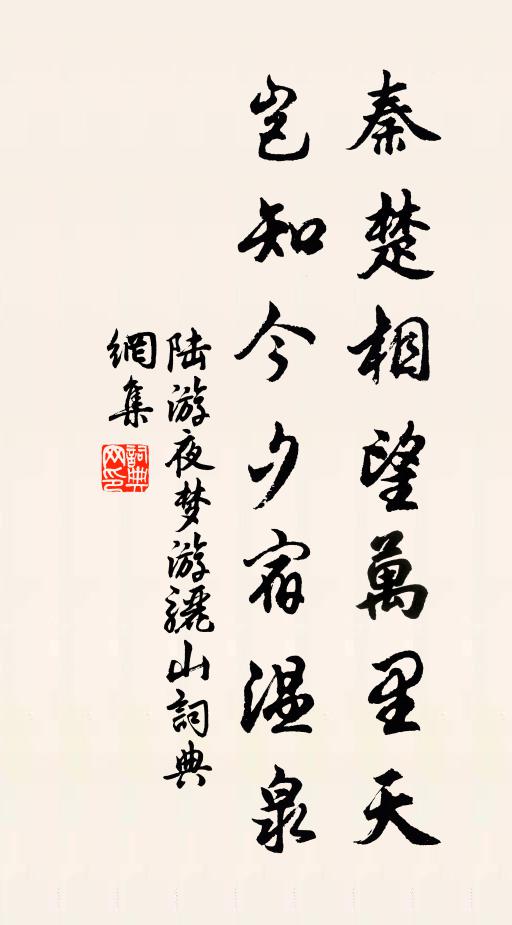 秦楚相望萬里天
豈知今夕宿温泉
陆游夜梦游驪山詞典
網集
詞典
网印